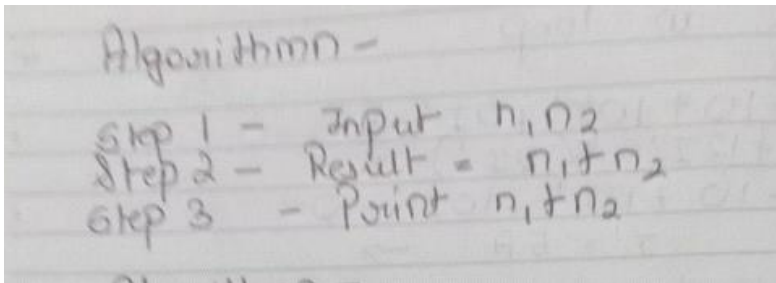 Algorithmn -
Step 1 - Input n₁ n₂
Step 2 - Result = n₁+n₂
Step 3 - Print n₁+n₂